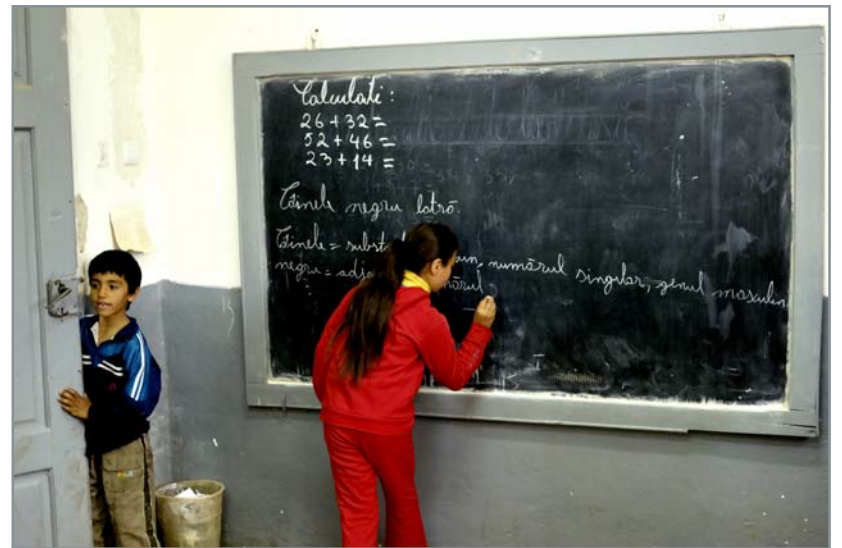 Calculati:
26+32=
52+46=
23+14=
Câinele negru latră.
Câinele = subst numărul singular, genul masculin
negru = adj